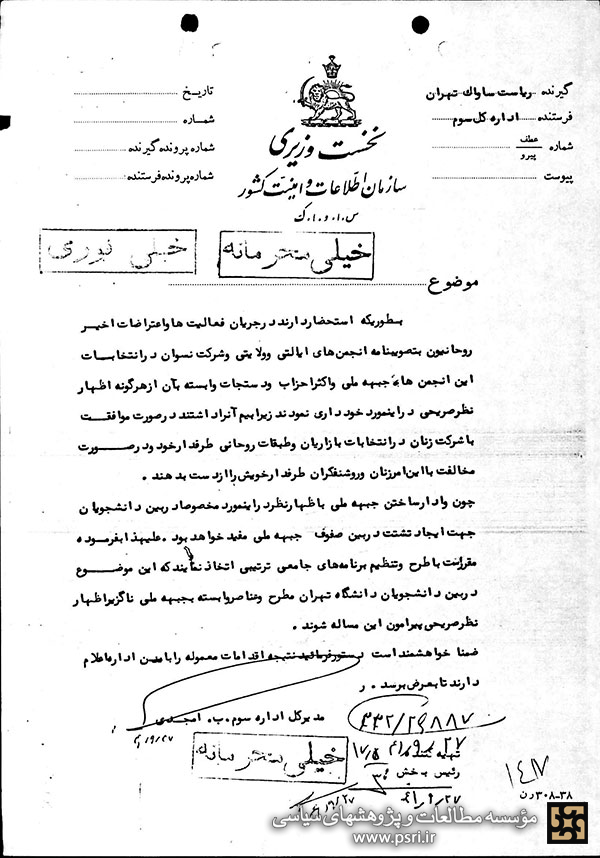 گیرنده ریاست ساواک تهران
فرستنده اداره کل سوم
شماره عطف پیرو
پیوست
نخست وزیری
سازمان اطلاعات و امنیت کشور
س.ا.و.ا.ک
تاریخ
شماره
شماره پرونده گیرنده
شماره پرونده فرستنده
خیلی محرمانه
خیلی فوری
موضوع
بطوریکه استحضار دارند در جریان فعالیت ها و اعتراضات اخیر
روحانیون بتصویبنامه انجمن های ایالتی و ولایتی و شرکت نسوان در انتخابات
این انجمن ها جبهه ملی و اکثر احزاب و دستجات وابسته بآن از هرگونه اظهار
نظر صریحی در اینمورد خود داری نمودند زیرا بیم آنرا داشتند در صورت موافقت
با شرکت زنان در انتخابات بازاریان و طبقات روحانی طرفدار خود و در صورت
مخالفت با این امر زنان و روشنفکران طرفدار خویش را از دست بدهند .
چون وادار ساختن جبهه ملی باظهار نظر در اینمورد مخصوصا در بین دانشجویان
جهت ایجاد تشتت در بین صفوف جبهه ملی مفید خواهد بود . علیهذا بفرموده
مقرر است با طرح و تنظیم برنامه های جامعی ترتیبی اتخاذ نمایند که این موضوع
در بین دانشجویان دانشگاه تهران مطرح و عناصر وابسته بجبهه ملی ناگزیر اظهار
نظر صریحی پیرامون این مساله شوند .
ضمنا خواهشمند است دستور فرمائید نتیجه اقدامات معموله را باین اداره اعلام
دارند تا بعرض برسد . ر
مدیر کل اداره سوم . ب . امجدی
۳۳۲/۲۹۸۸۷
۴۱/۹/۲۷
تهیه کننده
رئیس بخش
۴۱/۹/۲۷
خیلی محرمانه
۱۴۱۷
۳۸-۳۰۸ رن
مؤسسه مطالعات و پژوهشهای سیاسی
www.psri.ir